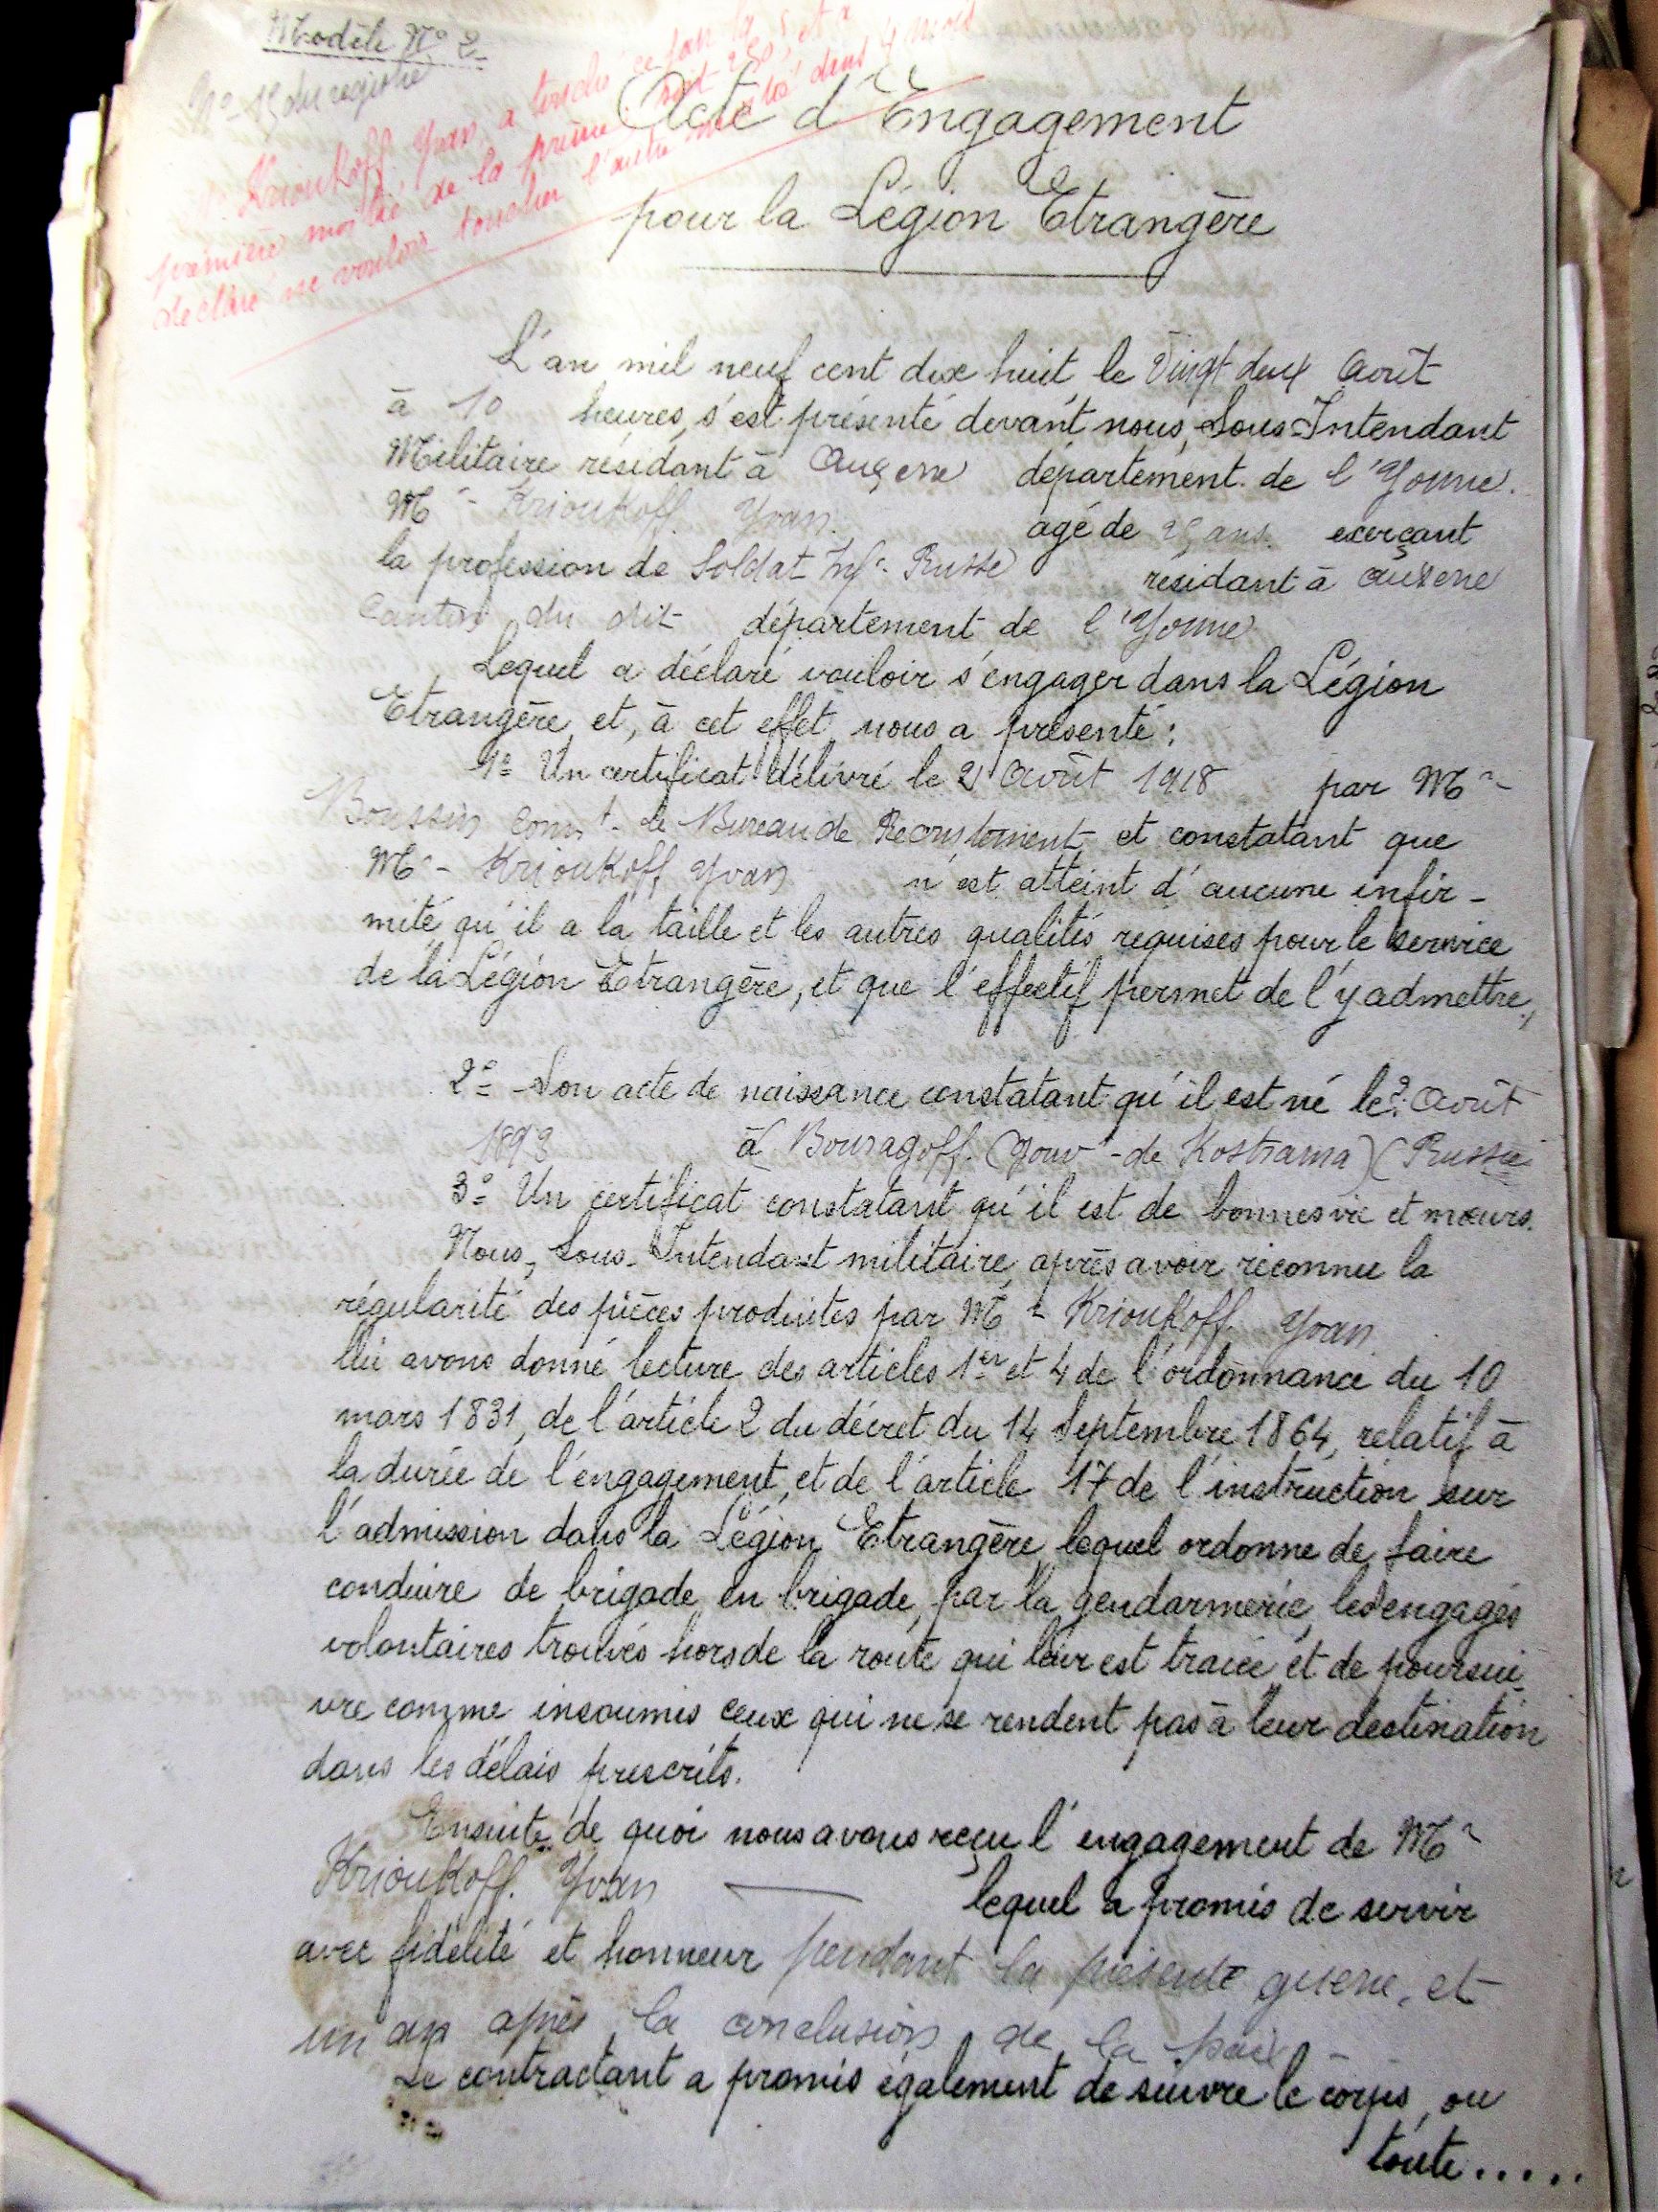 Modèle N° 2
N° 15 du registre
Krioukoff Yvan a touché ce jour la
première moitié de la prime soit 250 f et a
déclaré ne vouloir toucher l'autre moitié dans 4 mois
Acte d'Engagement
pour la Légion Etrangère
L'an mil neuf cent dix huit le Vingt deux Août
à 10 heures, s'est présenté devant nous, Sous-Intendant
Militaire résidant à Auxerre département de l'Yonne.
Mr - Krioukoff Yvan. agé de 25 ans. exerçant
la profession de Soldat Infie Russe résidant à Auxerre
Canton du dit département de l'Yonne
Lequel a déclaré vouloir s'engager dans la Légion
Etrangère et, à cet effet nous a présenté :
1° Un certificat délivré le 21 Août 1918 par Mr
Boussin Commt le Bureau de Recrutement et constatant que
Mr - Krioukoff Yvan n'est atteint d'aucune infir-
mité qu'il a la taille et les autres qualités requises pour le service
de la Légion Etrangère, et que l'effectif permet de l'y admettre,
2° Son acte de naissance constatant qu'il est né le 2 Août
1893 à Bouragoff. (Gouvt de Kostrama) (Russie
3° Un certificat constatant qu'il est de bonnes vie et mœurs.
Nous, Sous-Intendant militaire, après avoir reconnu la
régularité des pièces produites par Mr - Krioukoff Yvan
lui avons donné lecture des articles 1er et 4 de l'ordonnance du 10
mars 1831, de l'article 2 du décret du 14 Septembre 1864, relatif à
la durée de l'engagement, et de l'article 17 de l'instruction sur
l'admission dans la Légion Etrangère, lequel ordonne de faire
conduire de brigade en brigade, par la gendarmerie, les engagés
volontaires trouvés hors de la route qui leur est tracée et de poursui-
vre comme insoumis ceux qui ne se rendent pas à leur destination
dans les délais prescrits.
Ensuite de quoi nous avons reçu l'engagement de Mr
Krioukoff. Yvan — lequel a promis de servir
avec fidélité et honneur pendant la présente guerre, et
un an après la conclusion de la paix
Le contractant a promis également de suivre le corps, ou
toute.....